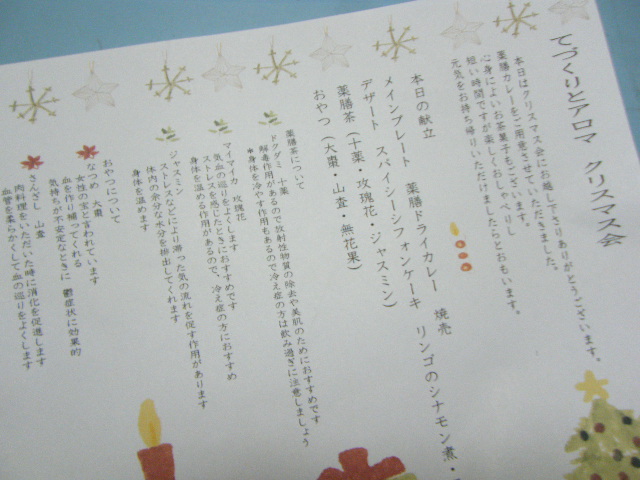 てづくりとアロマ　クリスマス会
本日はクリスマス会にお越し下さりありがとうございます。
薬膳カレーをご用意させていただきました。
心身によいお茶菓子もございます。
短い時間ですが楽しくおしゃべりし
元気をお持ち帰りいただけましたらとおもいます。
本日の献立
メインプレート　薬膳ドライカレー　焼売
デザート　スパイシーシフォンケーキ　リンゴのシナモン煮・
薬膳茶（十薬・玫瑰花・ジャスミン）
おやつ（大棗・山査・無花果）
薬膳茶について
ドクダミ　十薬
解毒作用があるので放射性物質の除去や美肌のためにおすすめです
＊身体を冷やす作用もあるので冷え症の方は飲み過ぎに注意しましょう
マイマイカ　玫瑰花
気血の巡りをよくします
ストレスを感じたときにおすすめです
身体を温める作用があるので、冷え症の方におすすめ
ジャスミン
ストレスなどにより滞った気の流れを促す作用があります
体内の余分な水分を排出してくれます
身体を温めます
おやつについて
なつめ　大棗
女性の宝と言われています
血を作り補ってくれる
気持ちが不安定なときに　鬱症状に効果的
さんざし　山査
肉料理をいただいた時に消化を促進します
血管を柔らかくして血の巡りをよくします